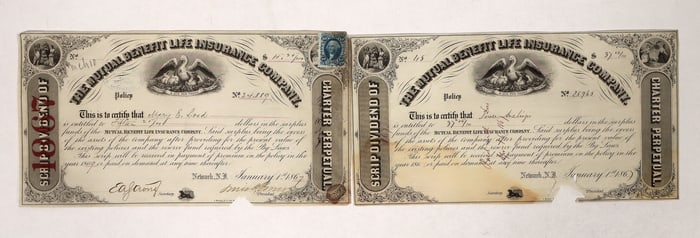 THE MUTUAL BENEFIT LIFE INSURANCE COMPANY.
SCRIP DIVIDEND OF
1867
CHARTER PERPETUAL
Policy No 24,889
This is to certify that Mary E. Good
is entitled to dollars in the surplus
funds of the MUTUAL BENEFIT LIFE INSURANCE COMPANY. Said surplus being the excess
of the assets of the company after providing for the present value of
the existing policies and the reserve fund required by the By Laws.
This scrip will be received in payment of premium on the policy in the
year 1869 is paid on demand at any time thereafter.
Newark, N.J. January 1st 1867
Secretary
President
THE MUTUAL BENEFIT LIFE INSURANCE COMPANY.
SCRIP DIVIDEND OF
CHARTER PERPETUAL
Policy
This is to certify that
is entitled to dollars in the surplus
funds of the MUTUAL BENEFIT LIFE INSURANCE COMPANY. Said surplus being the excess
of the assets of the company after providing for the present value of
the existing policies and the reserve fund required by the By Laws.
This scrip will be received in payment of premium on the policy in the
year 186 is paid on demand at any time thereafter.
Newark, N.J. January 1st 1867
Secretary
President